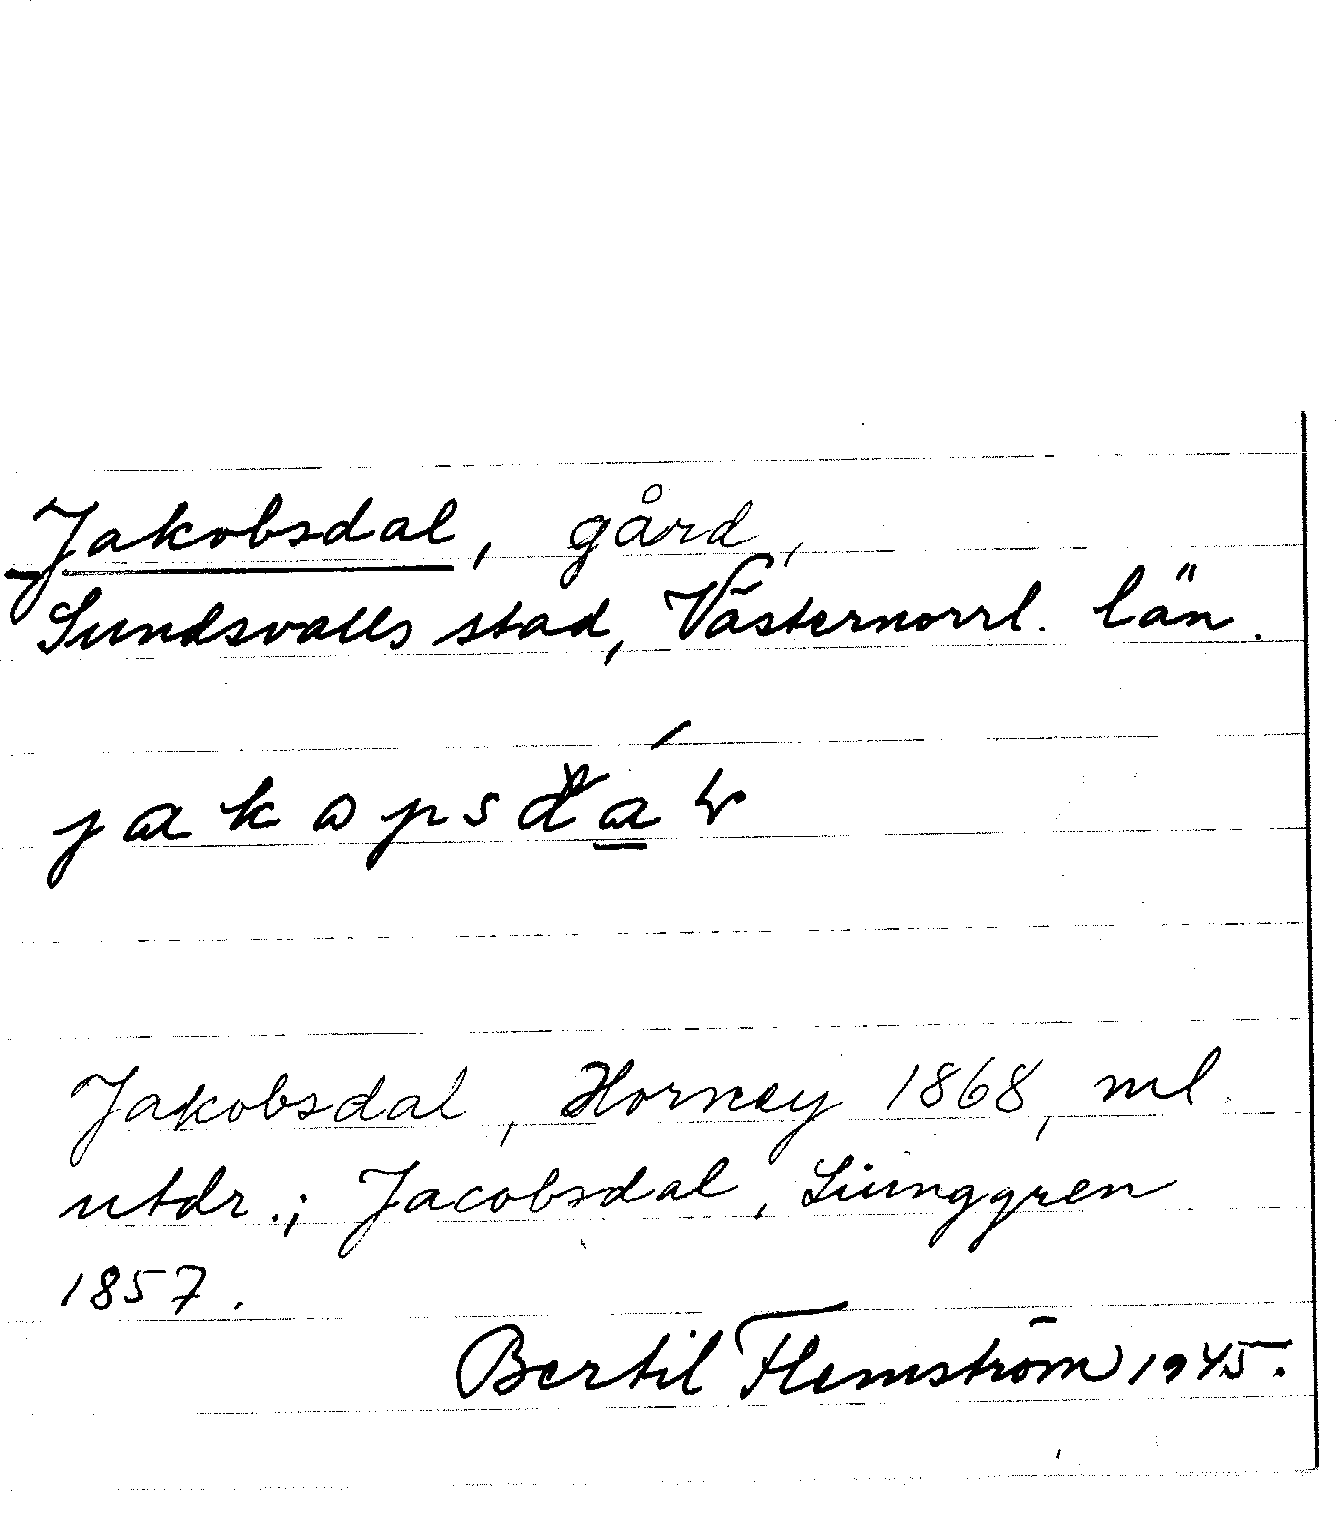 Jakobsdal, gård,
Sundsvalls stad, Västernorrl. län.
jakopsdáɽ
Jakobsdal, Horney 1868, ml
utdr.; Jacobsdal, Liunggren
1857.
Bertil Flemström 1945.